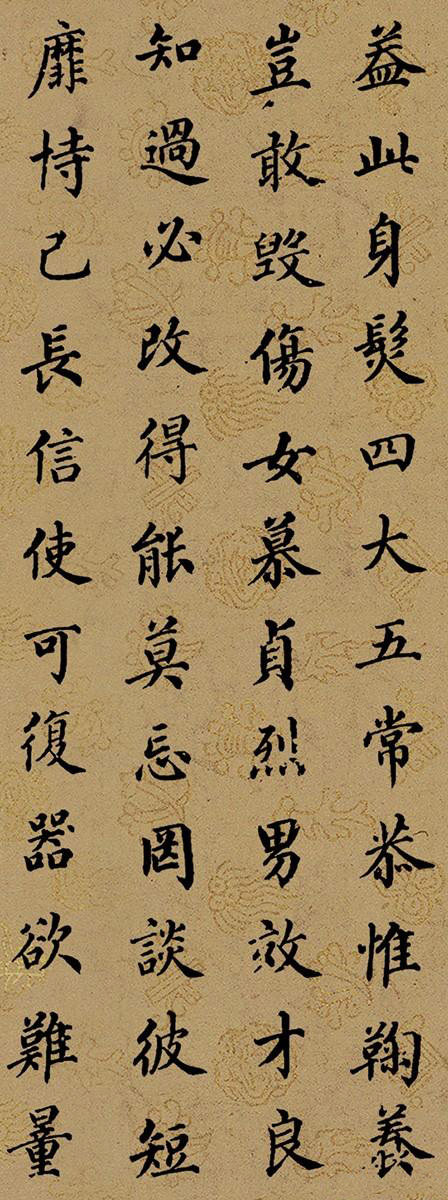 蓋此身髮四大五常恭惟鞠養
豈敢毀傷女慕貞烈男效才良
知過必改得能莫忘罔談彼短
靡恃己長信使可復器欲難量